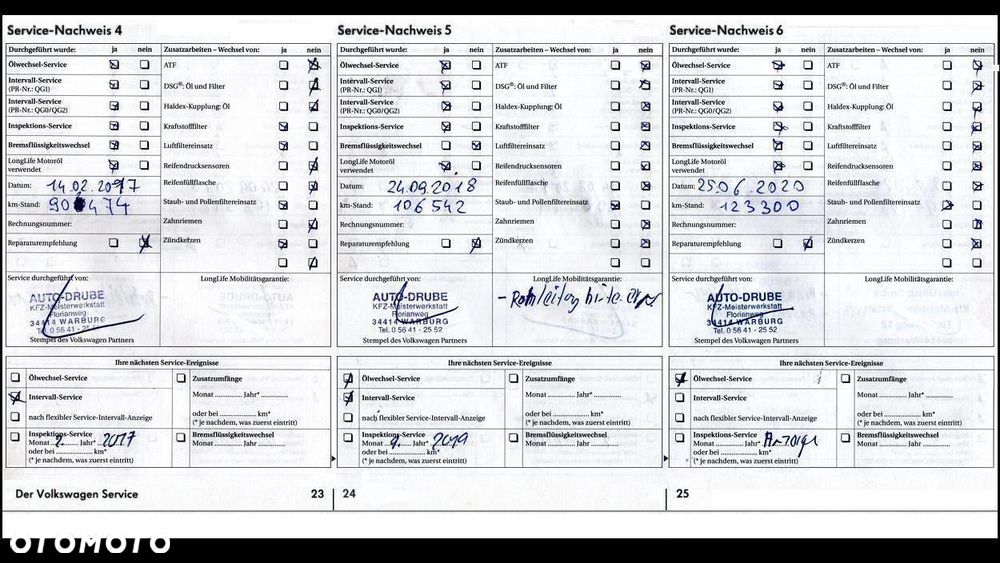 Service-Nachweis 4
Durchgeführt wurde: ja nein Zusatzarbeiten – Wechsel von: ja nein
Ölwechsel-Service ATF
Intervall-Service
(PR-Nr.: QG1) DSG®: Öl und Filter
Intervall-Service
(PR-Nr.: QG0/QG2) Haldex-Kupplung: Öl
Inspektions-Service Kraftstofffilter
Bremsflüssigkeitswechsel Luftfiltereinsatz
LongLife Motoröl
verwendet Reifendrucksensoren
Datum: 14.02.2017 Reifenfüllflasche
km-Stand: 90 474 Staub- und Pollenfiltereinsatz
Rechnungsnummer: Zahnriemen
Reparaturempfehlung Zündkerzen
Service durchgeführt von: LongLife Mobilitätsgarantie:
AUTO-DRUBE
KFZ-Meisterwerkstatt
Florianweg
34414 WARBURG
Tel. 0 56 41 - 25 52
Stempel des Volkswagen Partners
Ihre nächsten Service-Ereignisse
Ölwechsel-Service Zusatzumfänge
Intervall-Service Monat Jahr*
nach flexibler Service-Intervall-Anzeige oder bei km*
(* je nachdem, was zuerst eintritt)
Inspektions-Service Bremsflüssigkeitswechsel
Monat Jahr* 2017 Monat Jahr
oder bei km*
(* je nachdem, was zuerst eintritt)
Der Volkswagen Service 23
Service-Nachweis 5
Durchgeführt wurde: ja nein Zusatzarbeiten – Wechsel von: ja nein
Ölwechsel-Service ATF
Intervall-Service
(PR-Nr.: QG1) DSG®: Öl und Filter
Intervall-Service
(PR-Nr.: QG0/QG2) Haldex-Kupplung: Öl
Inspektions-Service Kraftstofffilter
Bremsflüssigkeitswechsel Luftfiltereinsatz
LongLife Motoröl
verwendet Reifendrucksensoren
Datum: 24.09.2018 Reifenfüllflasche
km-Stand: 106 542 Staub- und Pollenfiltereinsatz
Rechnungsnummer: Zahnriemen
Reparaturempfehlung Zündkerzen
Service durchgeführt von: LongLife Mobilitätsgarantie:
AUTO-DRUBE
KFZ-Meisterwerkstatt
Florianweg
34414 WARBURG
Tel. 0 56 41 - 25 52
Stempel des Volkswagen Partners
Ihre nächsten Service-Ereignisse
Ölwechsel-Service Zusatzumfänge
Intervall-Service Monat Jahr*
nach flexibler Service-Intervall-Anzeige oder bei km*
(* je nachdem, was zuerst eintritt)
Inspektions-Service Bremsflüssigkeitswechsel
Monat Jahr* 2019 Monat Jahr
oder bei km*
(* je nachdem, was zuerst eintritt)
24
Service-Nachweis 6
Durchgeführt wurde: ja nein Zusatzarbeiten – Wechsel von: ja nein
Ölwechsel-Service ATF
Intervall-Service
(PR-Nr.: QG1) DSG®: Öl und Filter
Intervall-Service
(PR-Nr.: QG0/QG2) Haldex-Kupplung: Öl
Inspektions-Service Kraftstofffilter
Bremsflüssigkeitswechsel Luftfiltereinsatz
LongLife Motoröl
verwendet Reifendrucksensoren
Datum: 25.06.2020 Reifenfüllflasche
km-Stand: 123300 Staub- und Pollenfiltereinsatz
Rechnungsnummer: Zahnriemen
Reparaturempfehlung Zündkerzen
Service durchgeführt von: LongLife Mobilitätsgarantie:
AUTO-DRUBE
KFZ-Meisterwerkstatt
Florianweg
34414 WARBURG
Tel. 0 56 41 - 25 52
Stempel des Volkswagen Partners
Ihre nächsten Service-Ereignisse
Ölwechsel-Service Zusatzumfänge
Intervall-Service Monat Jahr*
nach flexibler Service-Intervall-Anzeige oder bei km*
(* je nachdem, was zuerst eintritt)
Inspektions-Service Bremsflüssigkeitswechsel
Monat Jahr* Anzeige Monat Jahr
oder bei km*
(* je nachdem, was zuerst eintritt)
25
OTOMOTO